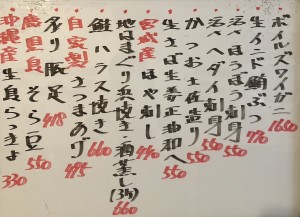 ボイルズワイガニ 1650
生インド鮪ぶつ 770
活〆ほうぼう刺身 550
活〆ヘダイ刺身 550
かつお土佐造り 550
生さば生姜正油和へ 550
宮城産 ほや刺し 440
地はまぐり浜焼き 酒蒸し(3ヶ) 660
鮭ハラス焼き 660
自家製 さつまあげ 495
炙り豚足 418
鹿児島 そら豆 550
沖縄産 生島らっきょ 330